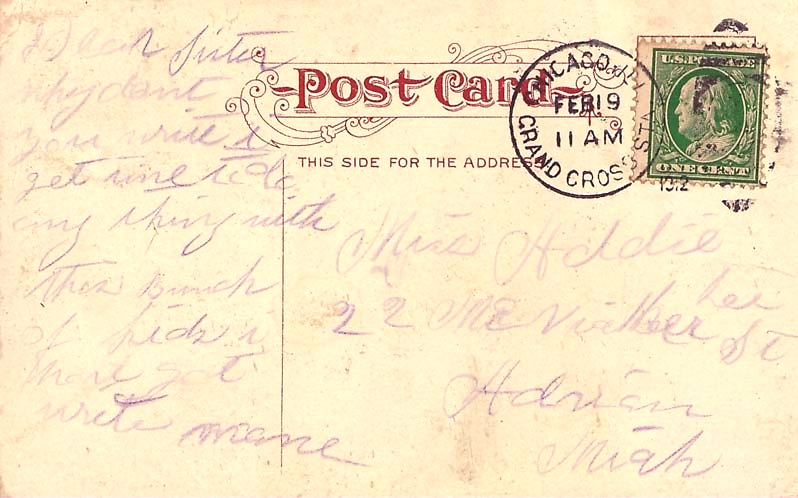 Dear Sister
why dont
you write i
get time to do
any thing with
this bunch
of kids i
have got
write
Post Card
THIS SIDE FOR THE ADDRESS
CHICAGO, ILL.
FEB 19
11 AM
GRAND CROSS STA
1912
U.S. POSTAGE
ONE CENT
Miss Addie
Lee
22 Mc Vicker St
Adrian
Mich